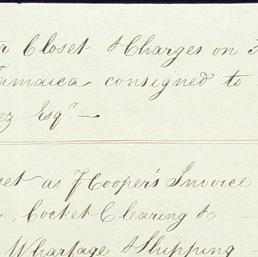 Closet & Charges on
Jamaica consigned to
Esqr. —
as J Cooper's Invoice
Cocket Clearing &c
Wharfage & Shipping —